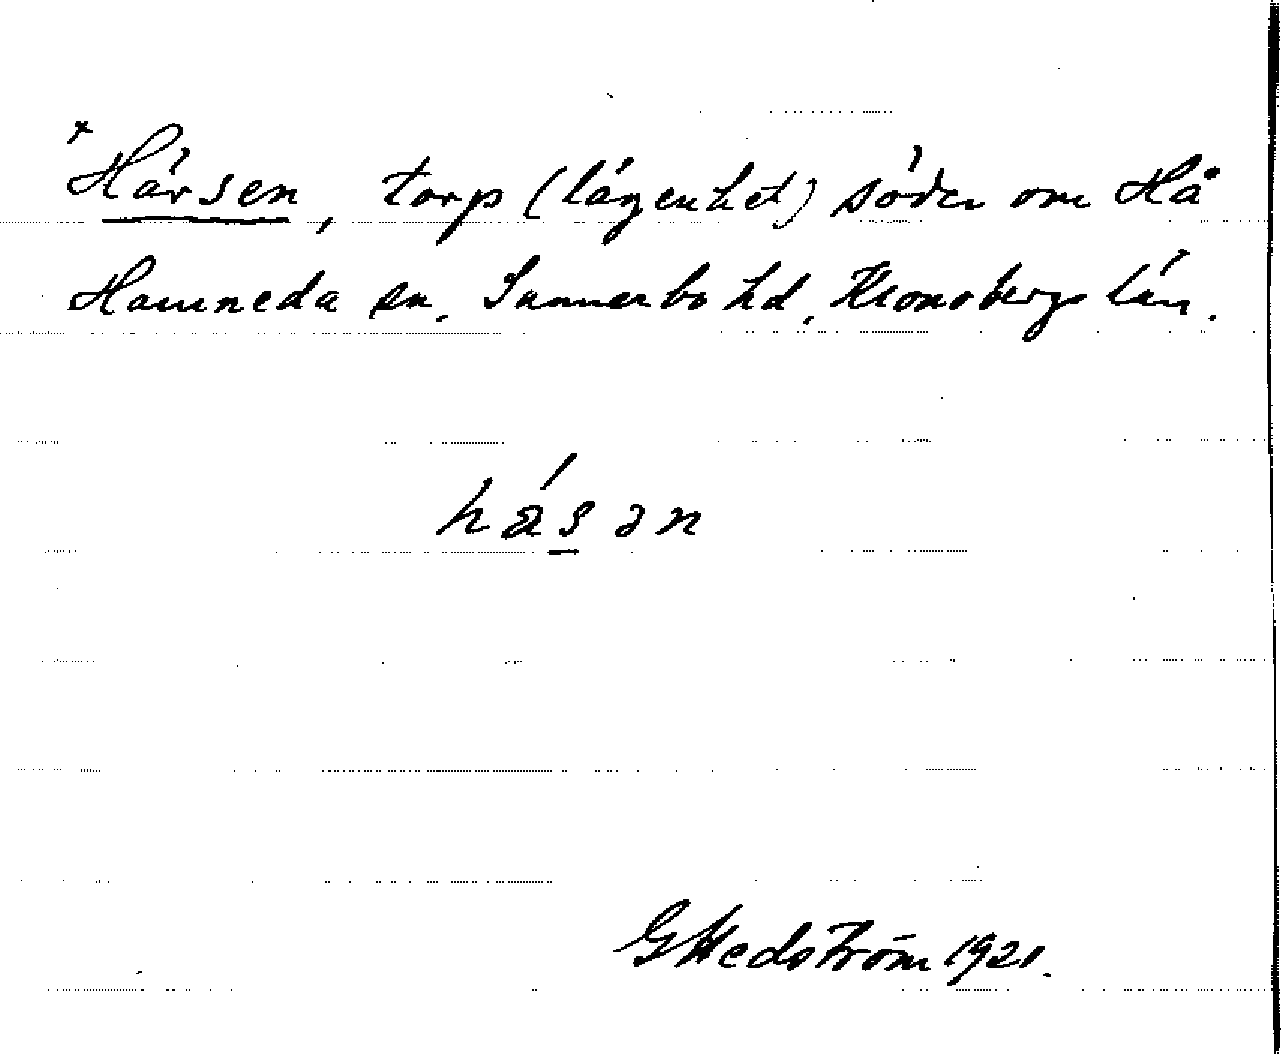 × Härsen, torp (lägenhet) söder om Hå
Hamneda sn. Sunnerbo hd, Kronobergs län.
GHedström 1921.